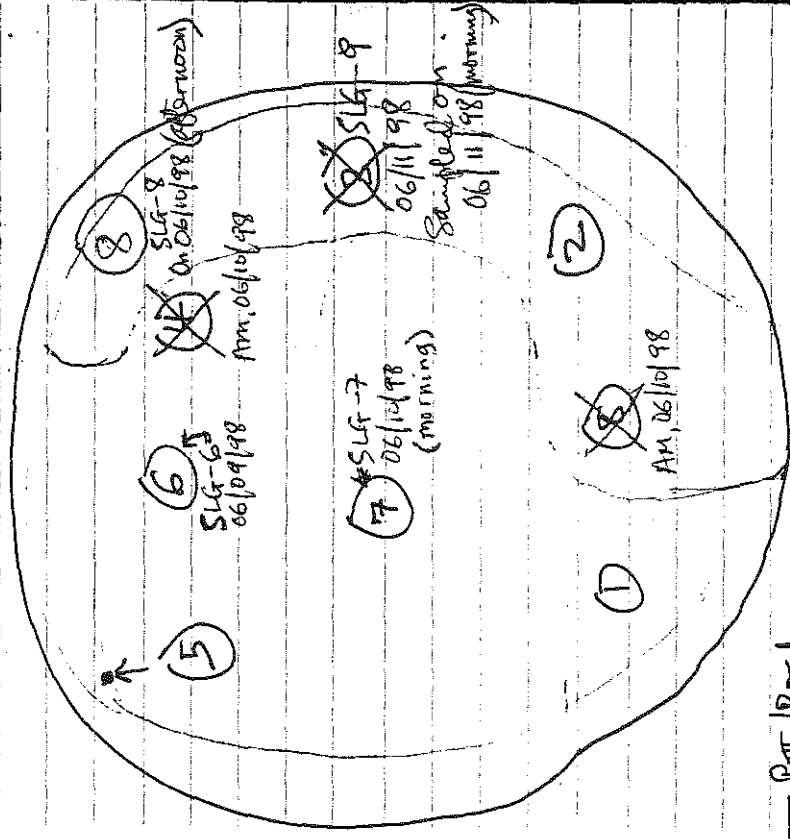 8
SLG-8
On 06/10/98 (afternoon)
4
Am, 06/10/98
SLG-9
06/11/98
Sampled on
06/11/98 (morning)
6
SLG-6
06/09/98
*SLG-7
06/10/98
(morning)
7
2
5
8
AM, 06/10/98
1